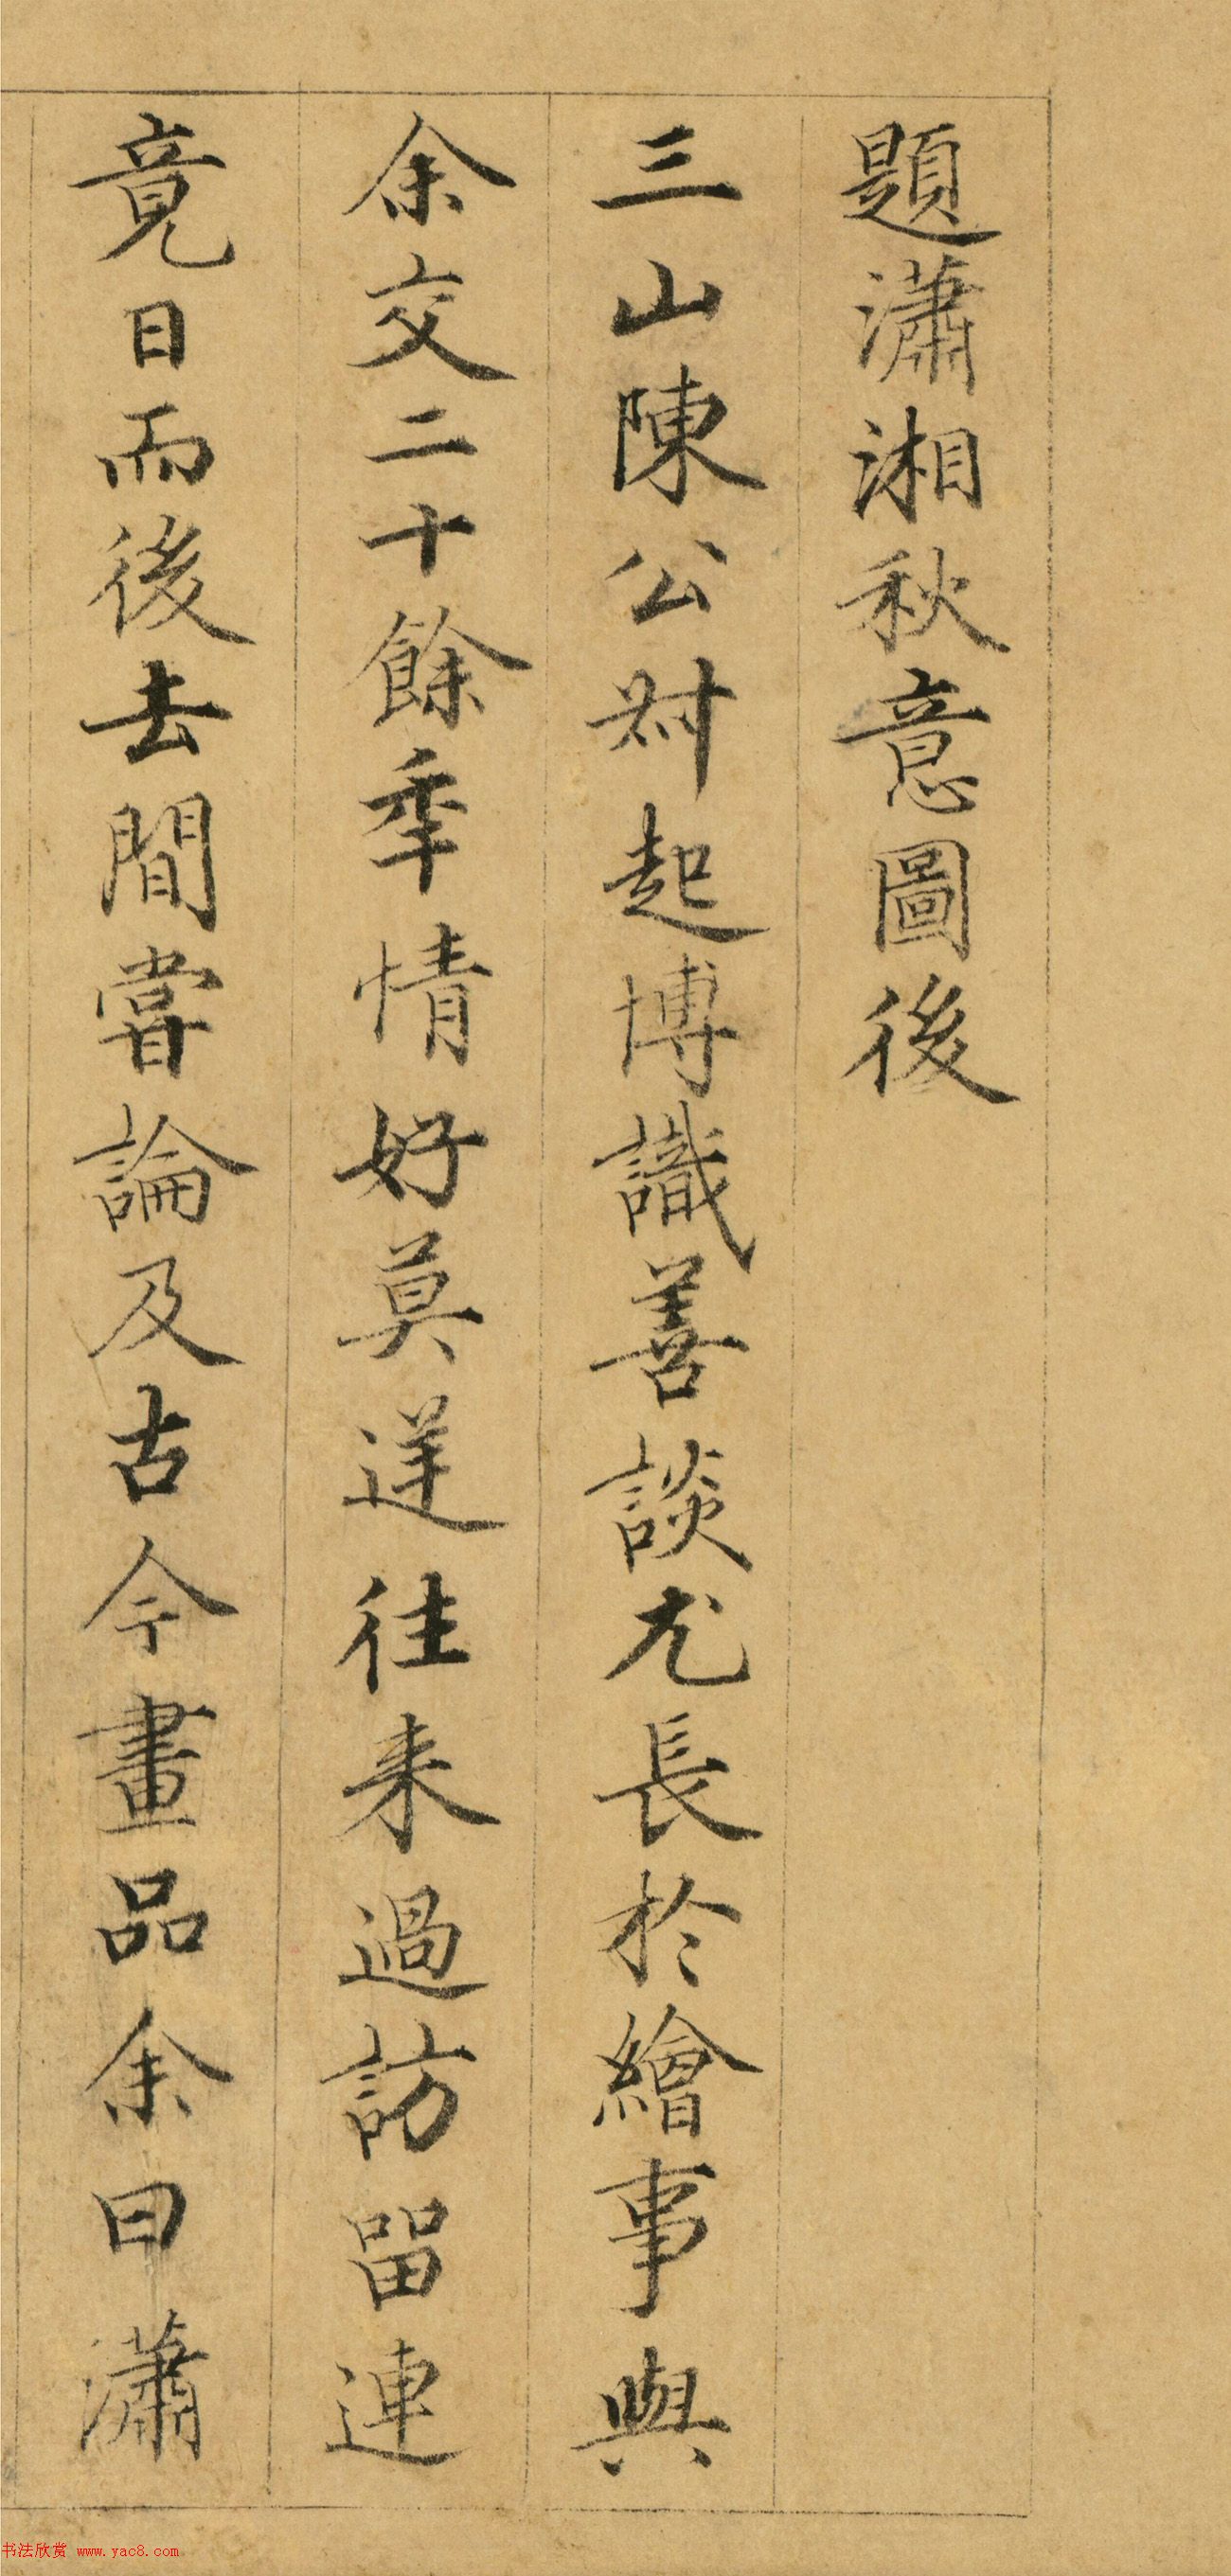 題瀟湘秋意圖後
三山陳公叔起博識善談尤長於繪事與
余交二十餘季情好莫逆往来過訪留連
竟日而後去間嘗論及古今畫品余曰瀟
书法欣赏 www.yac8.com